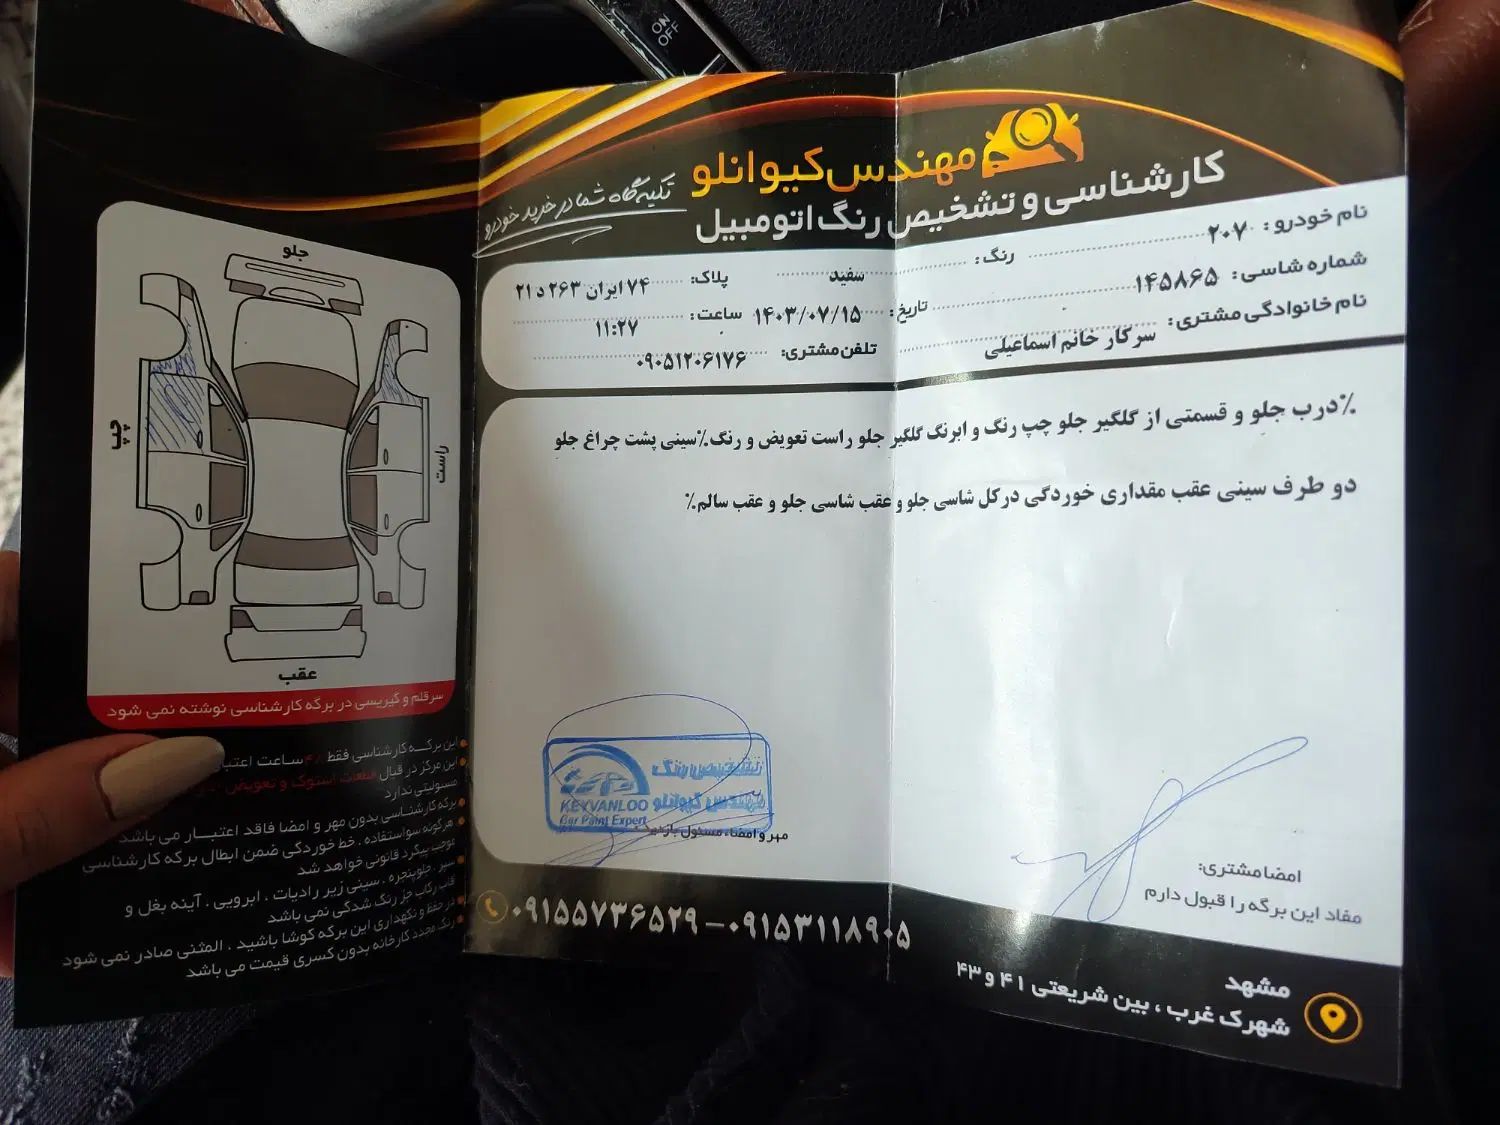 ON
OFF
مهندس کیوانلو
کارشناسی و تشخیص رنگ اتومبیل
تکیه گاه شما در خرید خودرو
نام خودرو: ۲۰۷
رنگ: سفید
پلاک: ۷۴ ایران ۲۶۳ د ۲۱
شماره شاسی: ۱۴۵۸۶۵
تاریخ: ۱۴۰۳/۰۷/۱۵
ساعت: ۱۱:۲۷
نام خانوادگی مشتری: سرکار خانم اسماعیلی
تلفن مشتری: ۰۹۰۵۱۲۰۶۱۷۶
٪درب جلو و قسمتی از گلگیر جلو چپ رنگ و ابرنگ گلگیر جلو راست تعویض و رنگ٪سینی پشت چراغ جلو
دو طرف سینی عقب مقداری خوردگی درکل شاسی جلو و عقب شاسی جلو و عقب سالم٪
تشخیص رنگ
مهندس کیوانلو
KEYVANLOO
Car Paint Expert
مهر و امضاء مسئول بازدید:
امضا مشتری:
مفاد این برگه را قبول دارم
۰۹۱۵۵۷۳۶۵۲۹ – ۰۹۱۵۳۱۱۸۹۰۵
مشهد
شهرک غرب ، بین شریعتی ۴۱ و ۴۳
جلو
چپ
راست
عقب
سرقلم و گیریسی در برگه کارشناسی نوشته نمی شود
این برگه کارشناسی فقط ۲۴ ساعت اعتبار
این مرکز در قبال قطعات استوک و تعویض
مسئولیتی ندارد
برگه کارشناسی بدون مهر و امضا فاقد اعتبار می باشد
هرگونه سواستفاده ، خط خوردگی ضمن ابطال برگه کارشناسی
موجب پیگرد قانونی خواهد شد
سپر ، جلوپنجره ، سینی زیر رادیات ، ابرویی ، آینه بغل و
قاب رکاب جز رنگ شدگی نمی باشد
در حفظ و نگهداری این برگه کوشا باشید ، المثنی صادر نمی شود
رنگ مجدد کارخانه بدون کسری قیمت می باشد